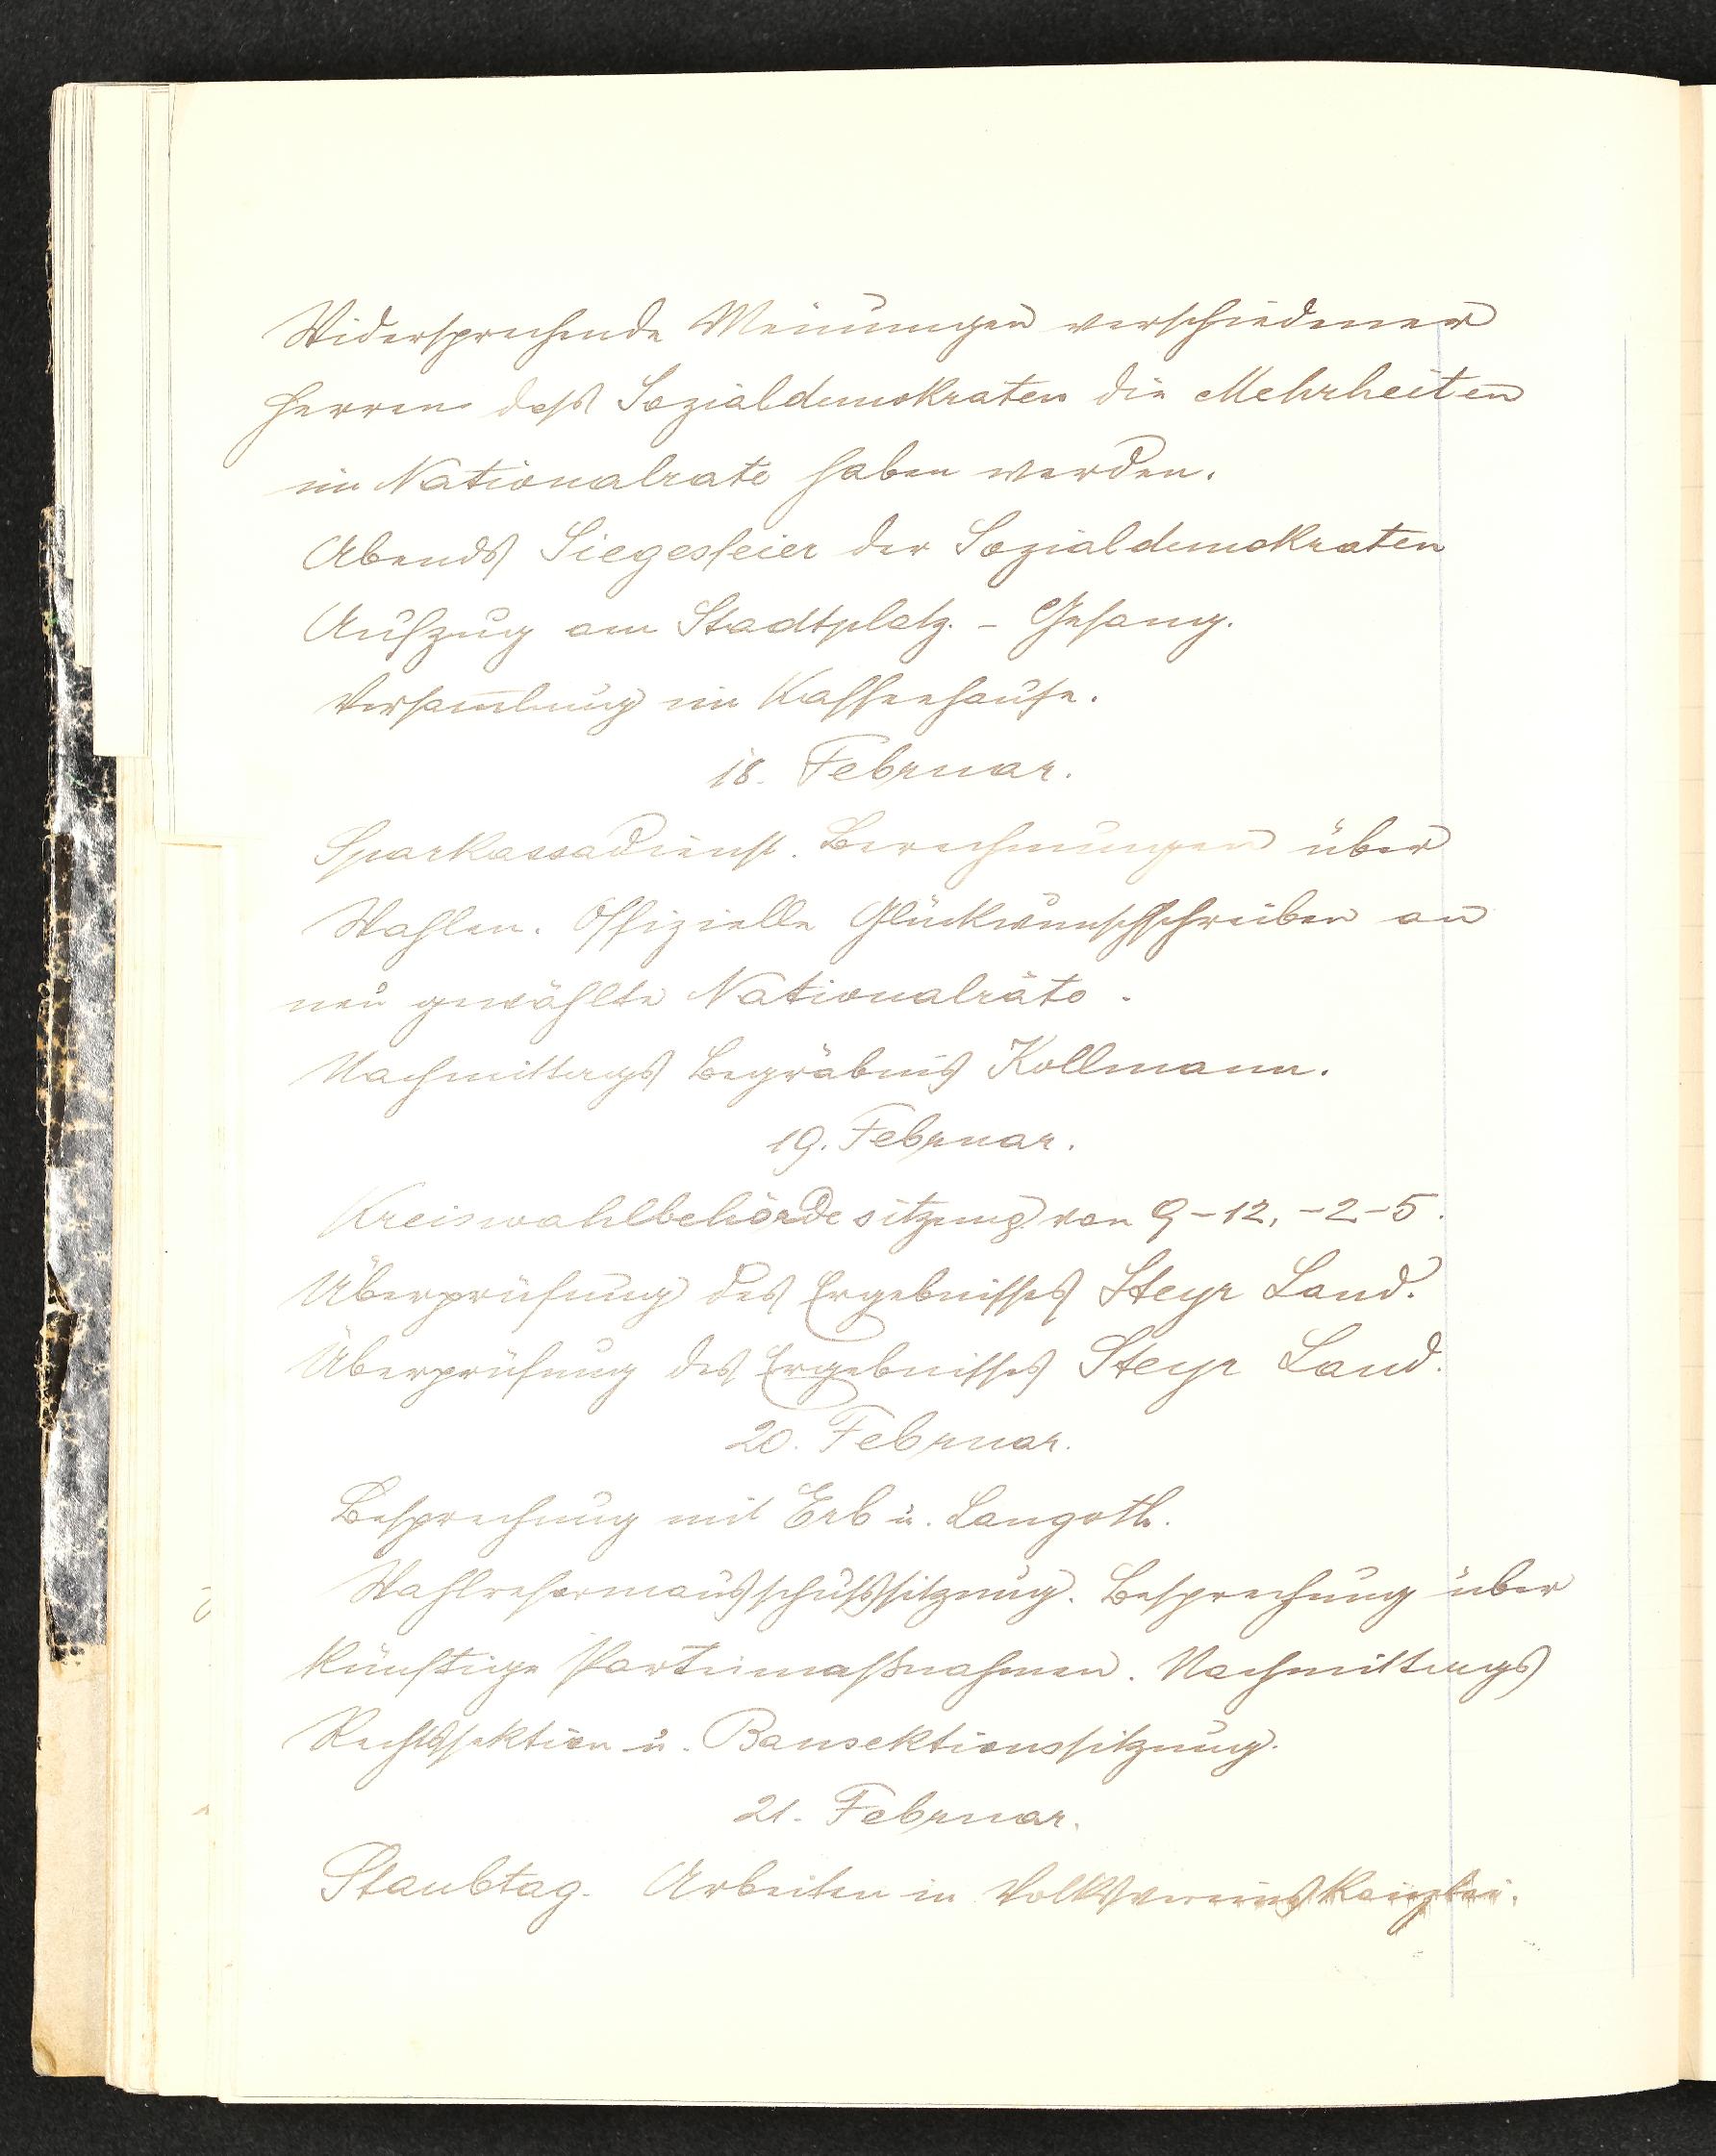 Widersprechende Meinungen verschiedener
Herren daß Sozialdemokraten die Mehrheiten
im Nationalrate haben werden.
Abends Siegesfeier der Sozialdemokraten
Aufzug am Stadtplatz. - Gesang.
Versam̅lung im Kaffeehause.
18. Februar.
Sparkassadienst. Berechnungen über
Wahlen. Offizielle Glückwunschschreiben an
neu gewählte Nationalräte.
Nachmittags Begräbnis Kollmann.
19. Februar.
Kreiswahlbehördesitzung von 9-12, -2-5.
Überprüfung des Ergebnisses Steyr Land.
Überprüfung des Ergebnisses Steyr Land.
20. Februar.
Besprechung mit Erb u. Langoth.
Wahlreformausschußsitzung. Besprechung über
künftige Parteimaßnahmen. Nachmittags
Rechtssektion u. Bausektionssitzung.
21. Februar.
Staubtag. Arbeiten in Volksvereinskanzlei.